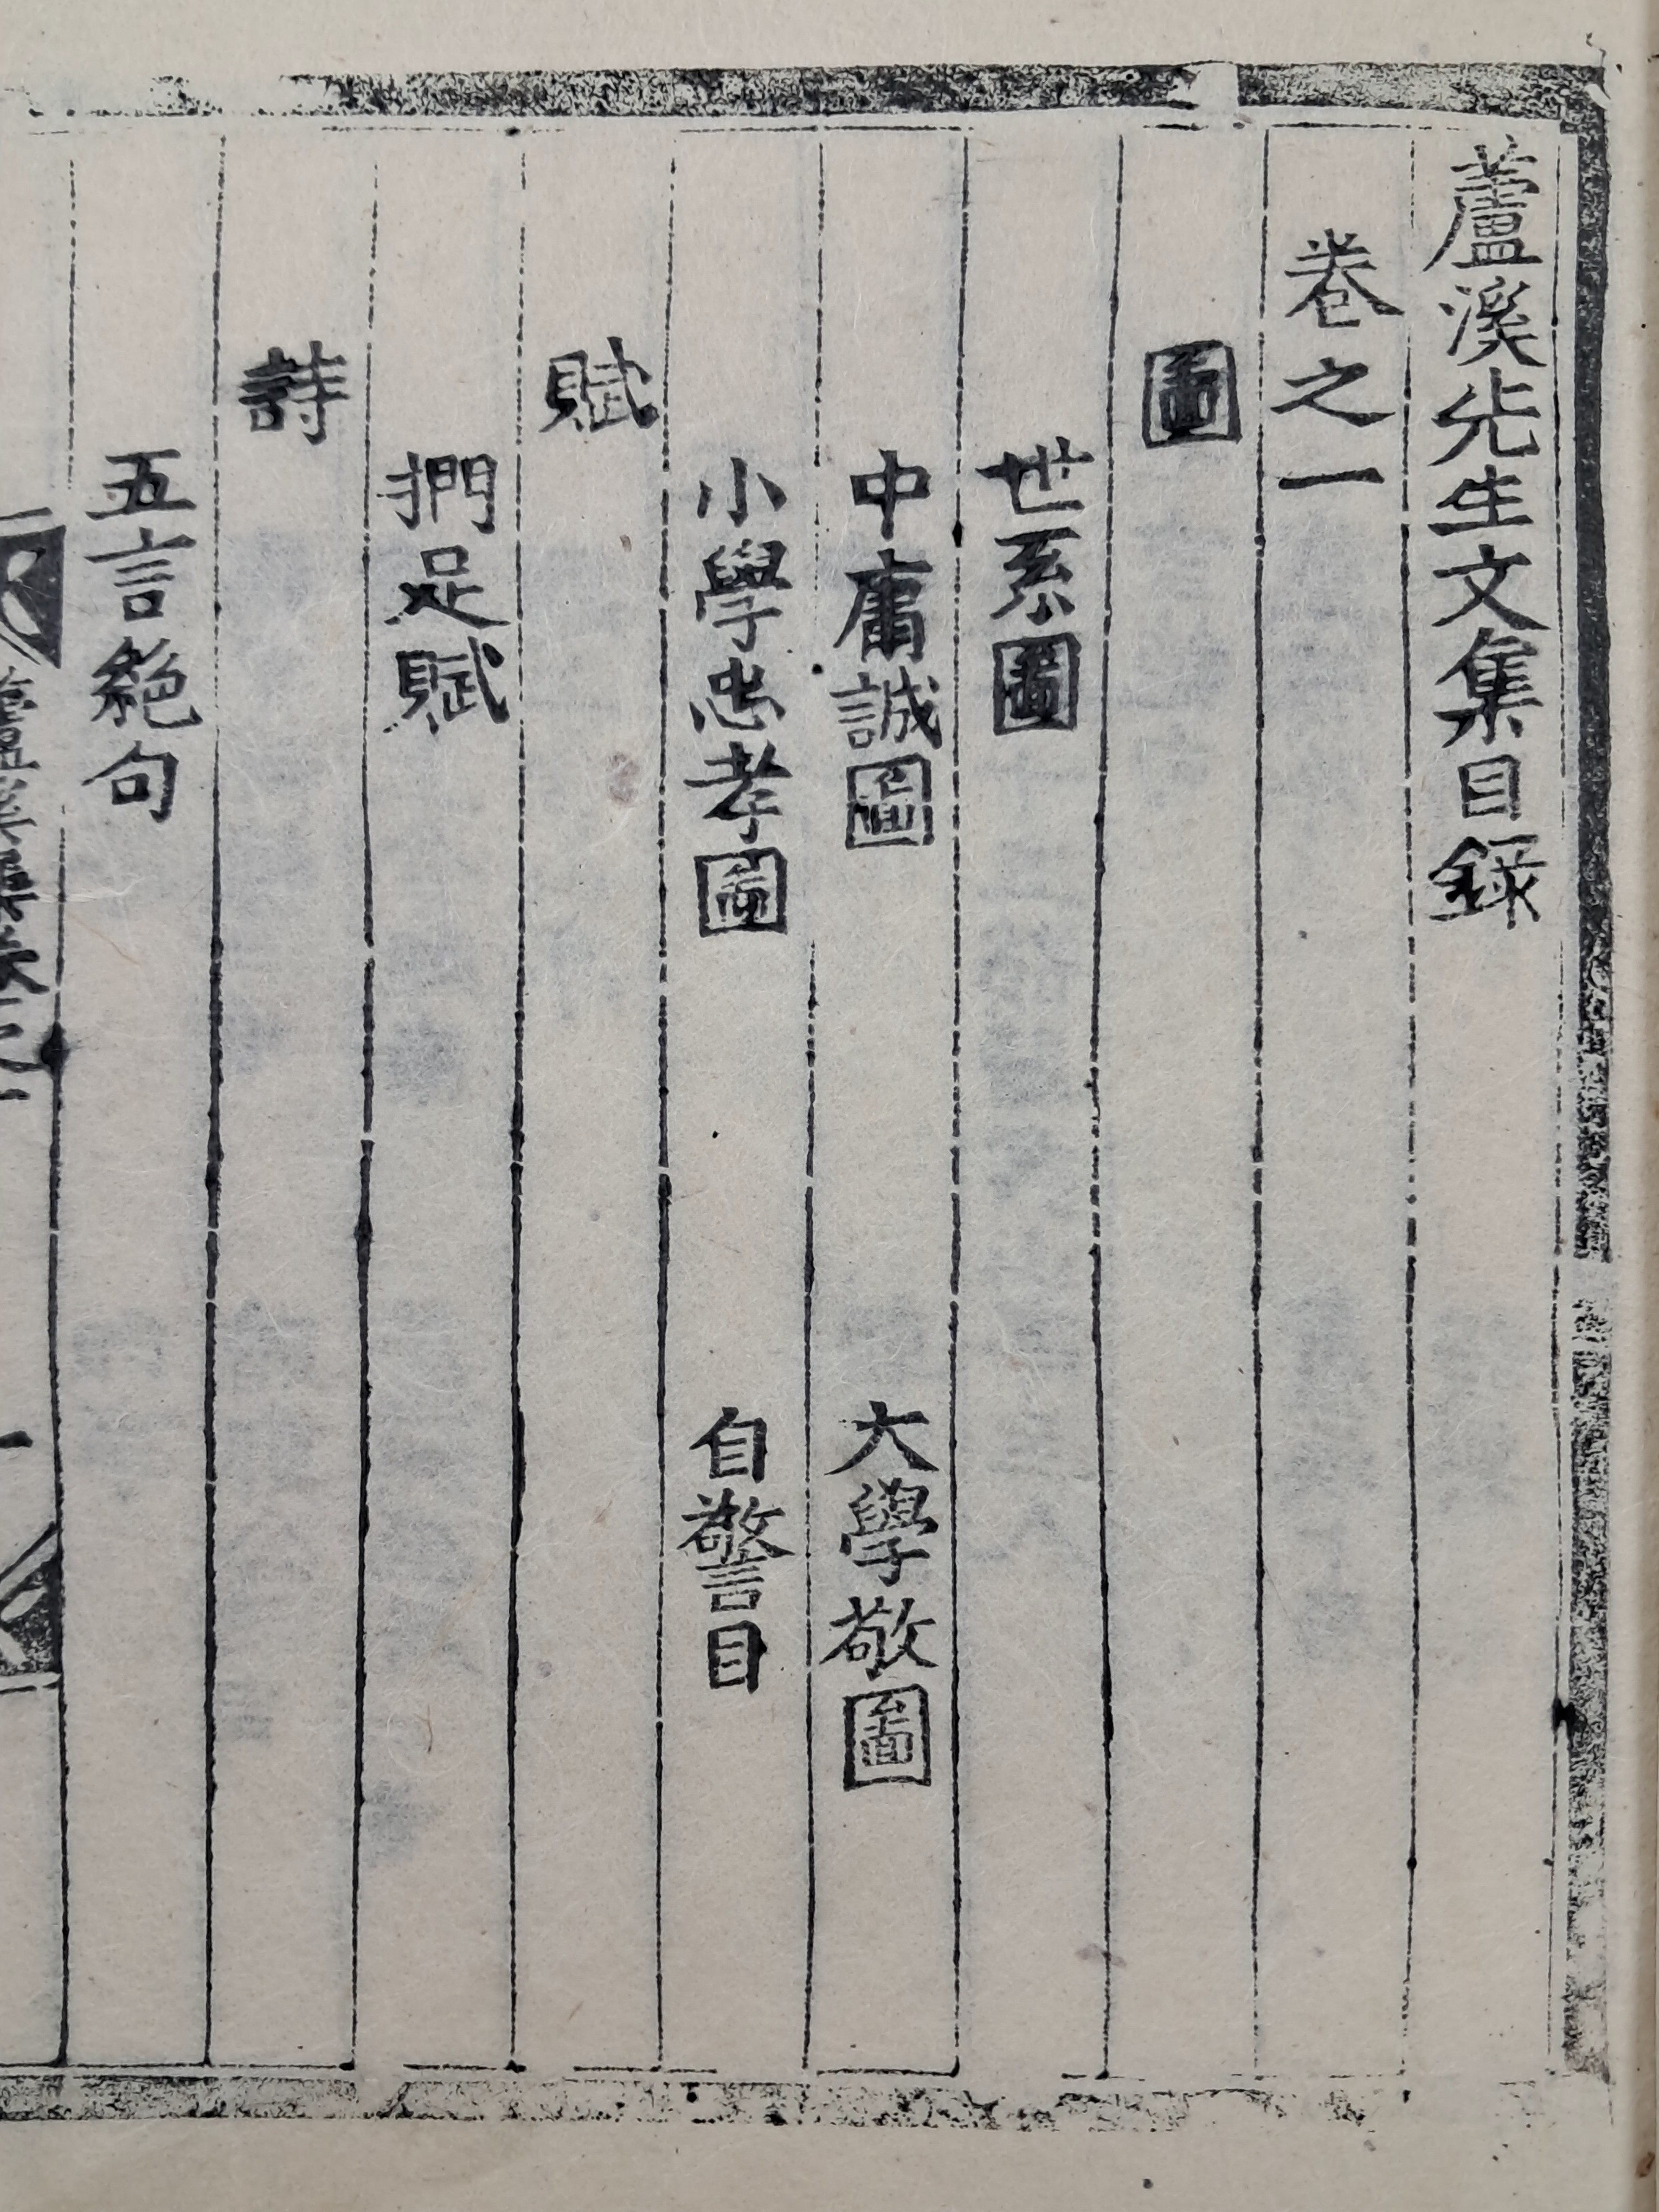 蘆溪先生文集目錄
卷之一
圖
世系圖
中庸誠圖 大學敬圖
小學忠孝圖 自警目
賦
捫足賦
詩
五言絶句
蘆溪集卷之